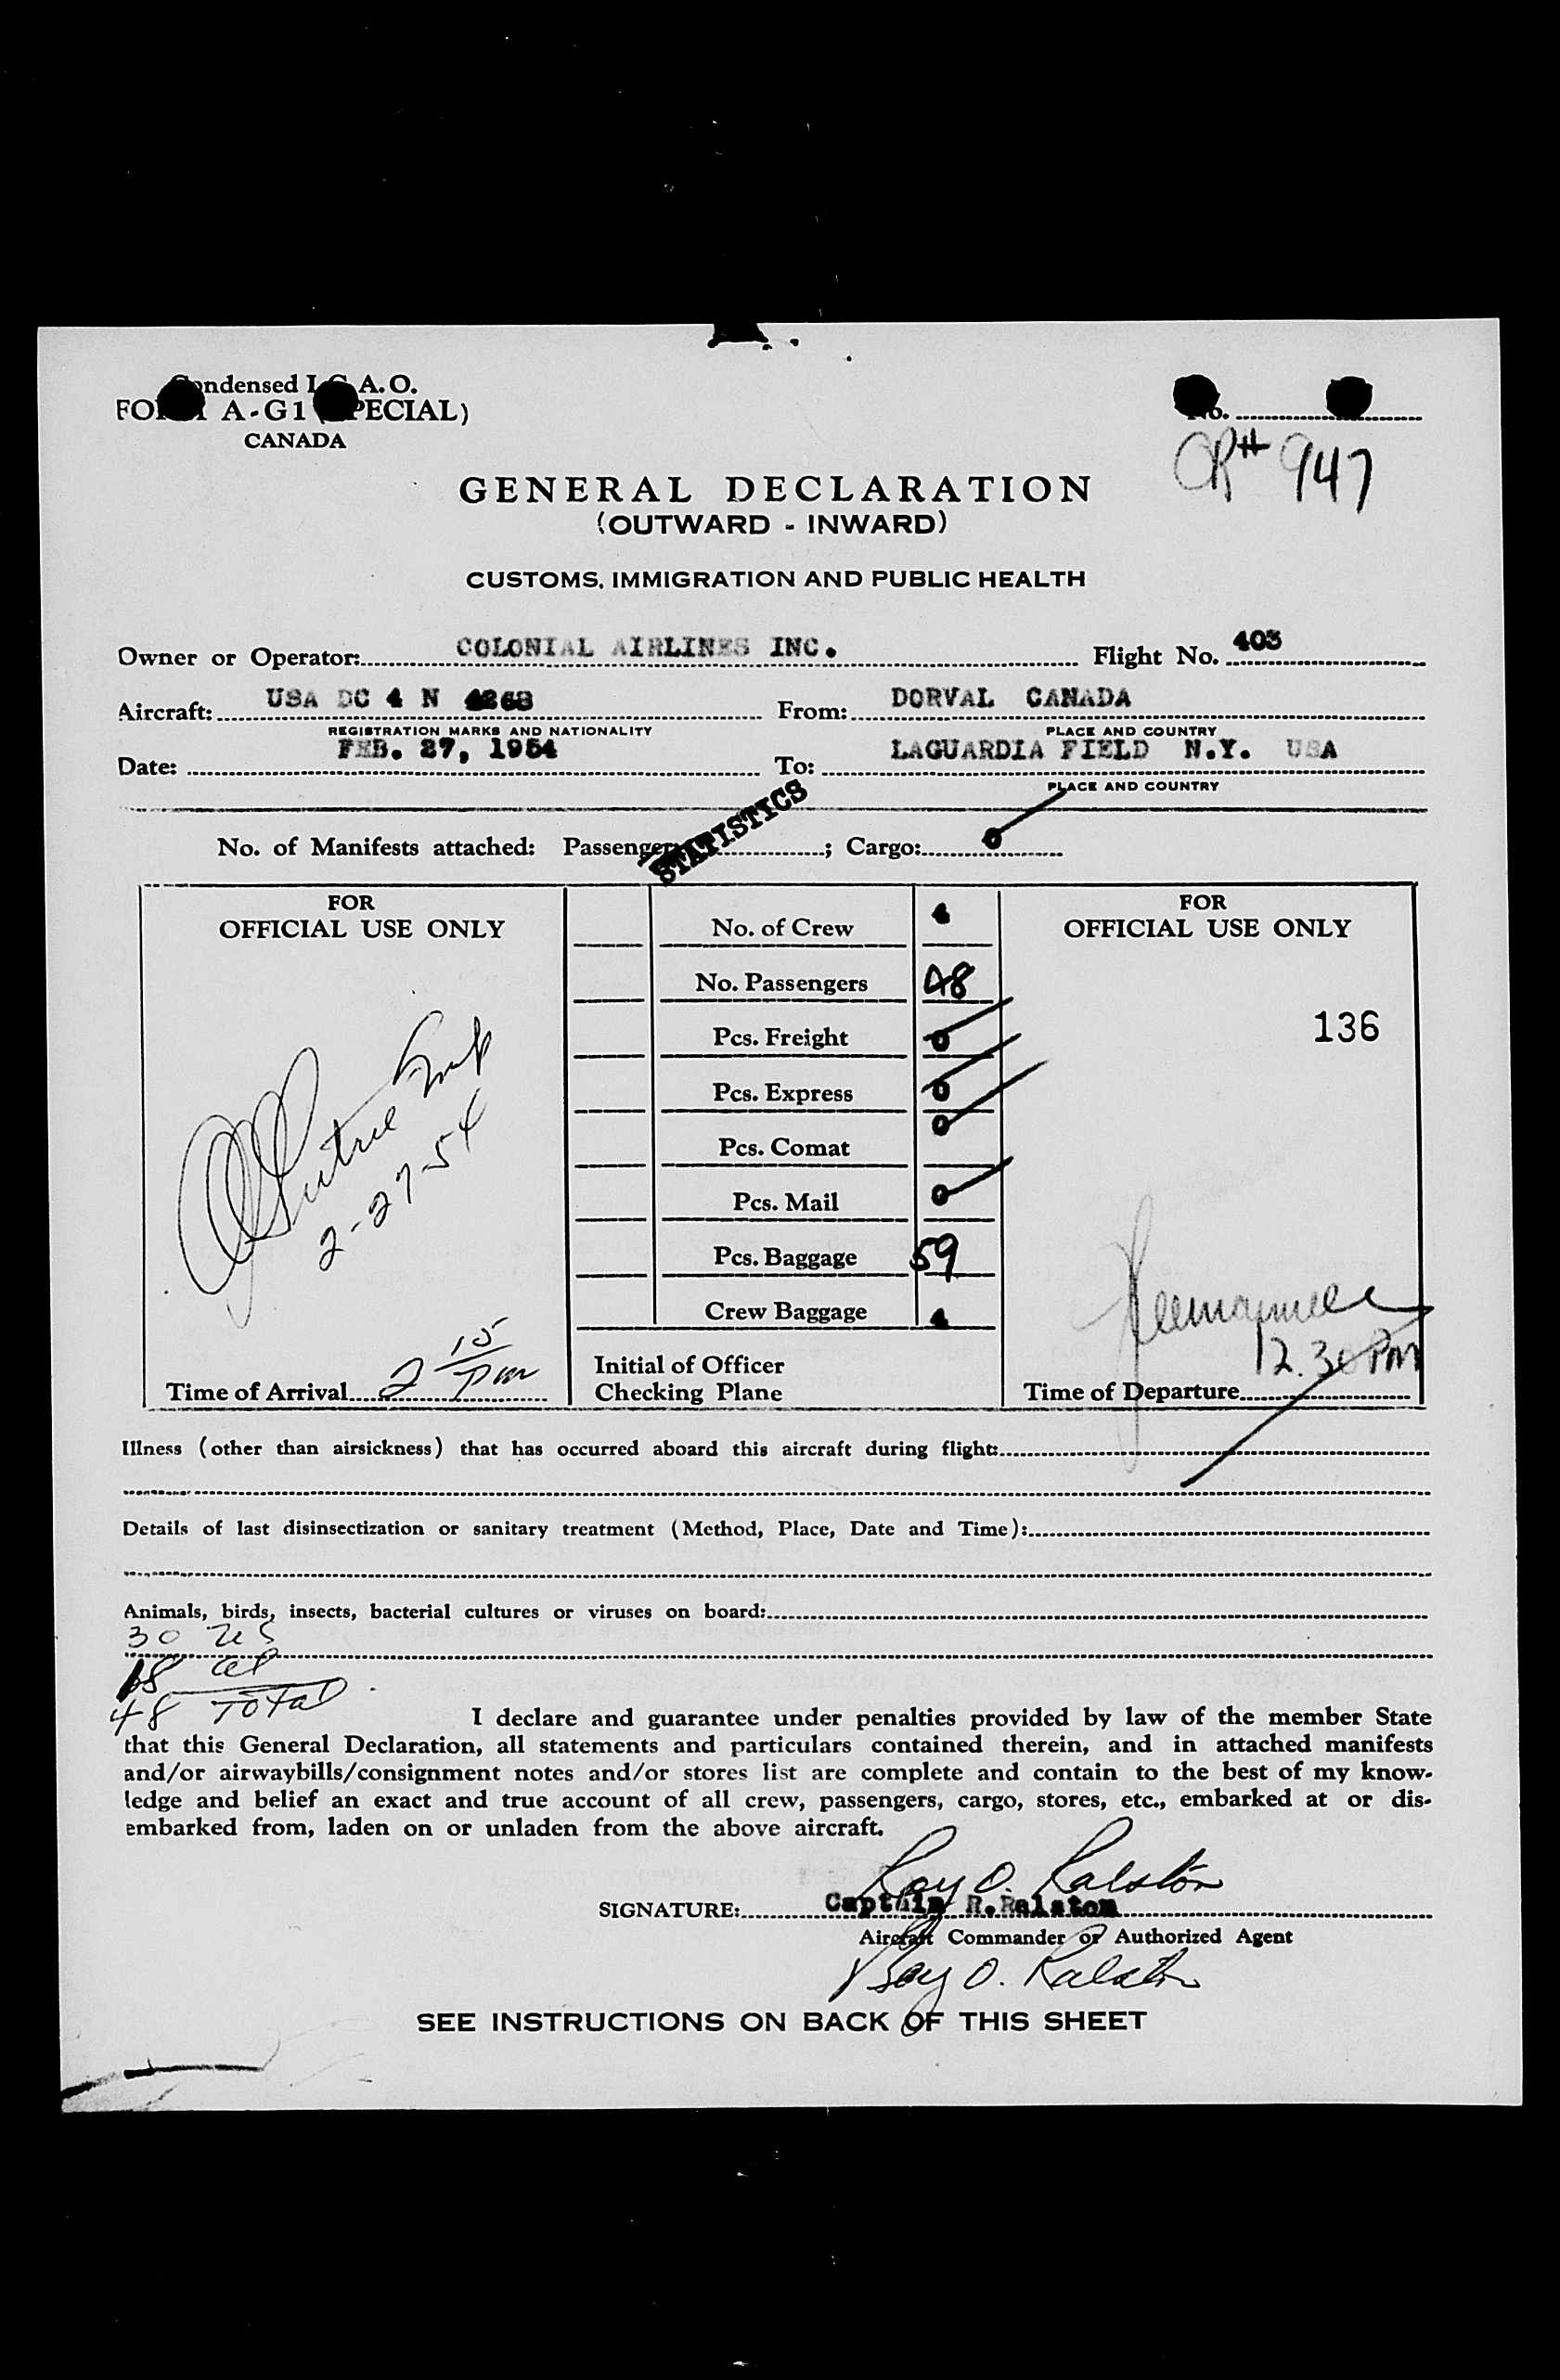 Condensed I.C.A.O.
FORM A-G1 (SPECIAL)
CANADA
No.
CR# 947
GENERAL DECLARATION
(OUTWARD - INWARD)
CUSTOMS, IMMIGRATION AND PUBLIC HEALTH
Owner or Operator: COLONIAL AIRLINES INC. Flight No. 403
Aircraft: USA DC 4 N 4268 From: DORVAL CANADA
REGISTRATION MARKS AND NATIONALITY PLACE AND COUNTRY
Date: FEB. 27, 1954 To: LAGUARDIA FIELD N.Y. USA
PLACE AND COUNTRY
STATISTICS
No. of Manifests attached: Passenger ; Cargo: 0
FOR
OFFICIAL USE ONLY
2-27-54
Time of Arrival 2 15 pm
No. of Crew 4
No. Passengers 48
Pcs. Freight 0
Pcs. Express 0
Pcs. Comat 0
Pcs. Mail 0
Pcs. Baggage 59
Crew Baggage 4
Initial of Officer
Checking Plane
FOR
OFFICIAL USE ONLY
136
12.30 PM
Time of Departure
Illness (other than airsickness) that has occurred aboard this aircraft during flight:
Details of last disinsectization or sanitary treatment (Method, Place, Date and Time):
Animals, birds, insects, bacterial cultures or viruses on board:
30 US
18 al
48 Total
I declare and guarantee under penalties provided by law of the member State
that this General Declaration, all statements and particulars contained therein, and in attached manifests
and/or airwaybills/consignment notes and/or stores list are complete and contain to the best of my know-
ledge and belief an exact and true account of all crew, passengers, cargo, stores, etc., embarked at or dis-
embarked from, laden on or unladen from the above aircraft.
Ray O. Ralston
SIGNATURE: Captain R. Ralston
Aircraft Commander or Authorized Agent
Ray O. Ralston
SEE INSTRUCTIONS ON BACK OF THIS SHEET